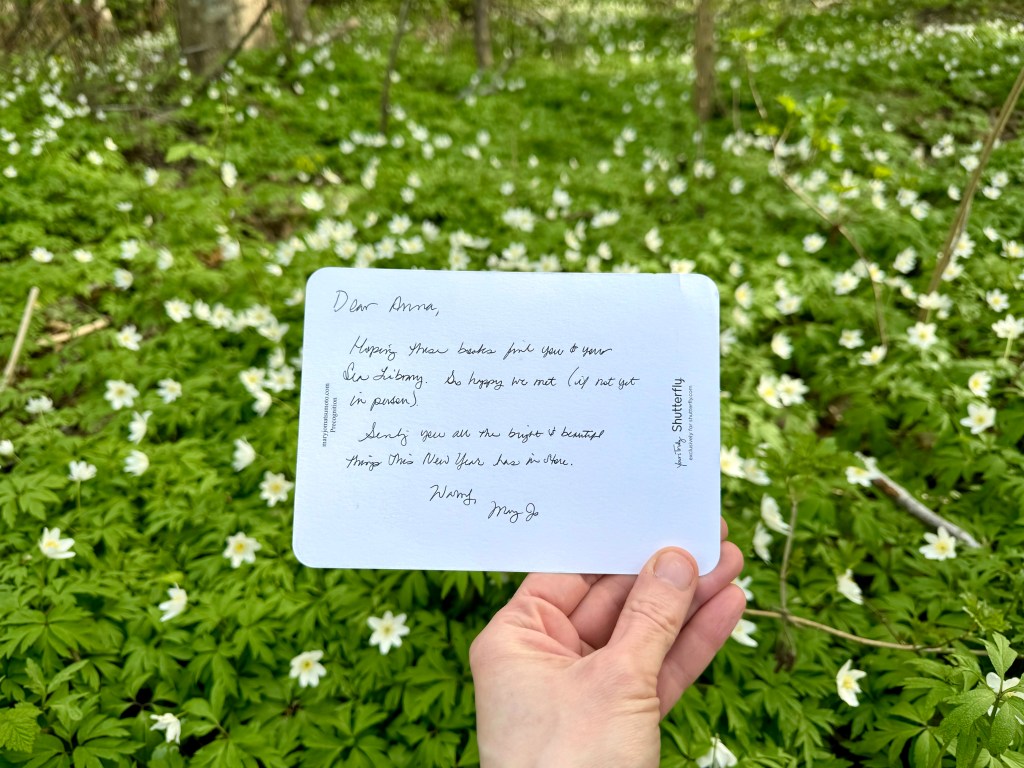 Dear Anna,
Hoping these books find you & your
Sea Library. So happy we met (if not yet
in person)
Sending you all the bright & beautiful
things this New Year has in store.
Warmly,
Mary Jo
maryjomatsumoto.com
Precognition
Yours Truly Shutterfly
exclusively for shutterfly.com